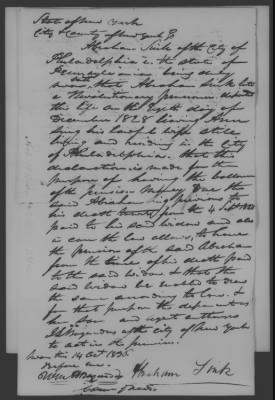 State of New York
City & County of New York
Abraham Sink of the City of
Philadelphia in the state of
Pennsylvania being duly
sworn that Abraham Sink late
a Revolutionary pensioner departed
this life on the day of
December 1828 leaving Ann
Sink his lawful wife still
living and residing in the City
of Philadelphia. That this
declaration is made for the
purpose of having the balance
of the pension money due the
said Abraham previous to
his death from the 4 Sept
paid to his said widow and also
in case the law allows, to have
the pension of the said Abraham
from the time of his death paid
to the said widow & that the
said widow be enabled to draw
the same according to law. &
for that purpose the deponent
and agent authorises
of the city of New York
to act in the premises.
Sworn this 14 Oct
before me
Abraham Sink
Com of Deeds